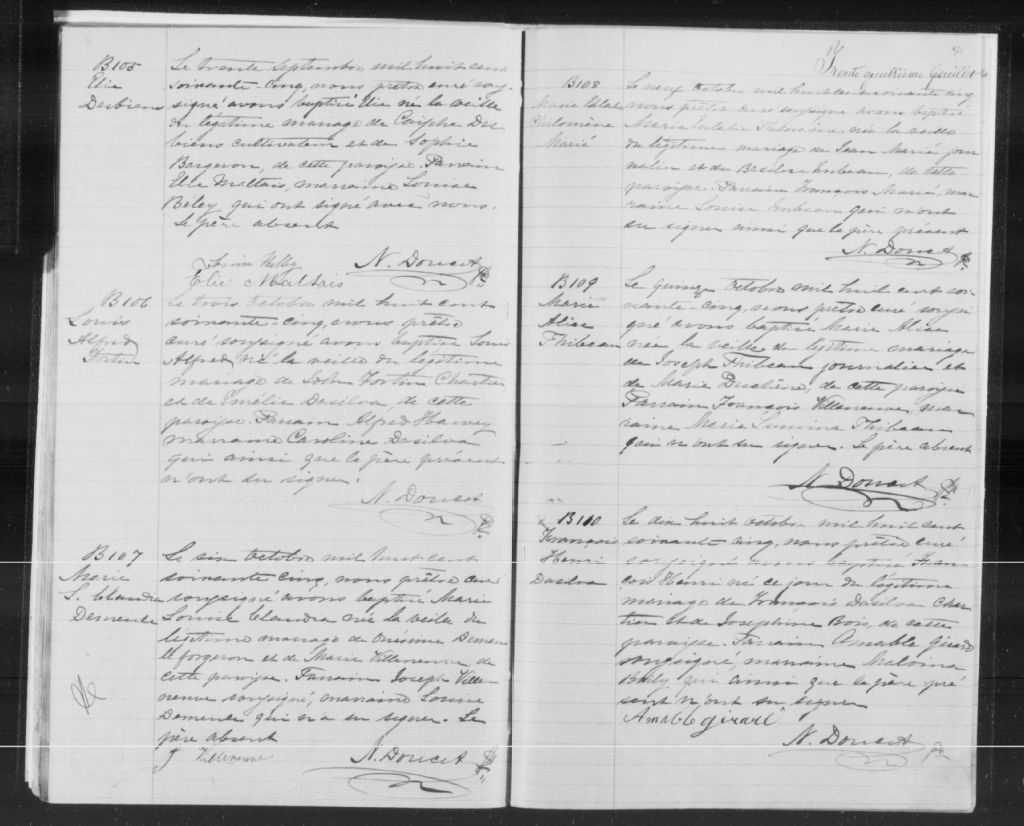 B105
Elie
Desbiens
Le trente Septembre mil huit cent
soixante-cinq, nous prêtre curé sous-
signé avons baptisé Elie né la veille
du légitime mariage de Caïphe Des
biens cultivateur et de Sophie
Bergeron, de cette paroisse. Parrain
Elie Maltais, marraine Louise
qui ont signé avec nous.
Le père absent
Elie Maltais
N. Doucet Ptre
B106
Louis
Alfred
Fortin
Le trois Octobre mil huit cent
soixante-cinq, nous prêtre
curé soussigné avons baptisé Louis
Alfred né la veille du légitime
mariage de John Fortin Chartier
et de Emélie Dasilva, de cette
paroisse. Parrain Alfred Harvey
marraine Caroline Dasilva
qui ainsi que le père présent
n'ont su signer.
N. Doucet Ptre
B107
Marie
L. Claudia
Demeule
Le six Octobre mil huit cent
soixante cinq, nous prêtre curé
soussigné avons baptisé Marie
Louise Claudia née la veille du
légitime mariage de Onésime Demeu
le forgeron et de Marie Villeneuve, de
cette paroisse. Parrain Joseph Ville-
neuve soussigné, marraine Louise
Demeule qui n'a su signer. Le
père absent
J Villeneuve
N. Doucet Ptre
Trente quatrième feuillet
B108
Marie Eulalie
Philomène
Marié
Le neuf Octobre mil huit cent soixante cinq
nous prêtre curé soussigné avons baptisé
Marie Eulalie Philomène née la veille
du légitime mariage de Jean Marié jour
nalier et de Basilisse Imbeau, de cette
paroisse. Parrain François Marié, mar
raine Louise Imbeau qui n'ont
su signer ainsi que le père présent
N. Doucet Ptre
B109
Marie
Alice
Thibeau
Le quinze Octobre mil huit cent soi-
xante-cinq, nous prêtre curé soussi
gné avons baptisé Marie Alice
née la veille du légitime mariage
de Joseph Thibeau journalier et
de Marie de cette paroisse
Parrain François Villeneuve, mar
raine Marie Thibeau
qui n'ont su signer. Le père absent
N. Doucet Ptre
B110
François
Henri
Dasilva
Le dix huit Octobre mil huit cent
soixante cinq, nous prêtre curé
soussigné avons baptisé Fran
çois Henri né ce jour du légitime
mariage de François Dasilva Char
tier et de Josephine Bois, de cette
paroisse. Parrain Amable Girard
soussigné, marraine
qui ainsi que le père pré
sent n'ont su signer
Amable girard
N. Doucet Ptre